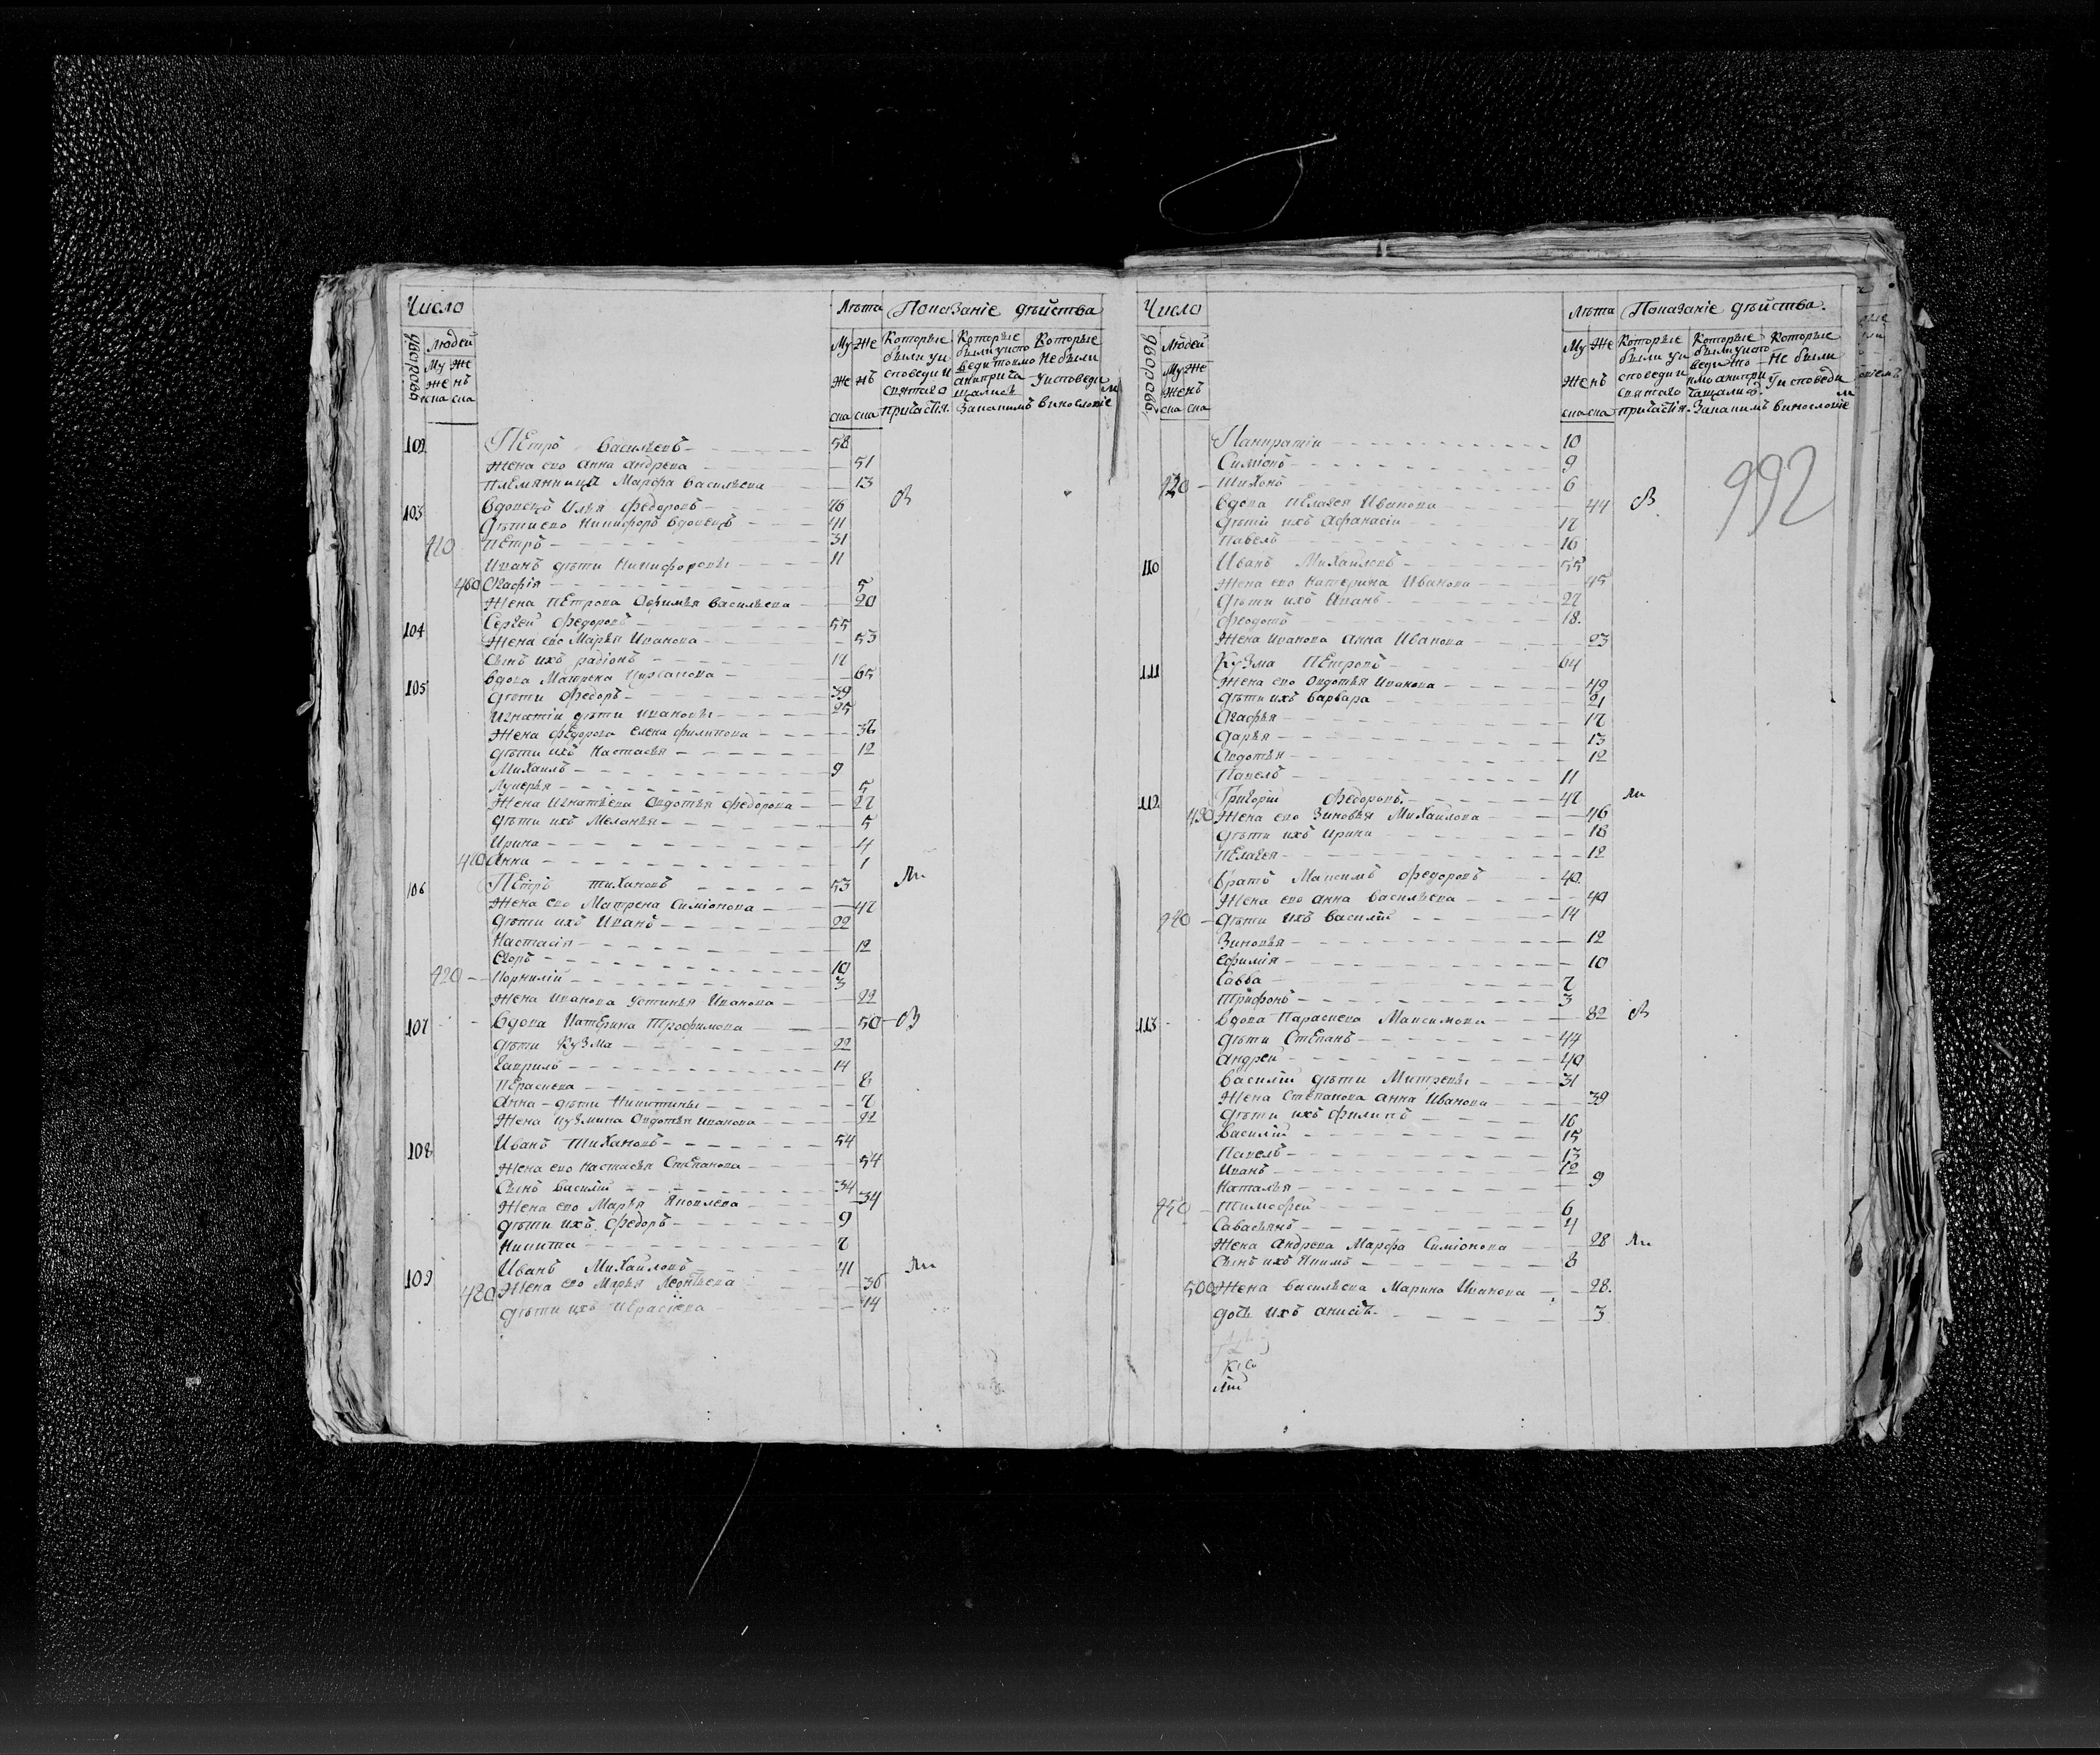 Число
Лѣта Показаніе дѣйства
дворовъ Людей
Му Же
жеска нска
Му Же
жеска нска
Которые были у исповеди и святаго причастія.
Которые были у исповеди токмо а не причащались За какимъ винословіемъ
Которые Не были у исповеди
102 Пётръ Васильевъ 58
Жена ево Анна Андрева 51
племянница Марфа Васильева 13
103 Вдовецъ Илья Федоровъ 76 В
дѣти ево Никифоръ вдовецъ 41
410 Петръ 31
Иванъ дѣти Никифоровы 11
460 Агафія 5
Жена Петрова Афимья Васильева 20
104 Сергей Федоровъ 55
Жена ево Марья Иванова 53
Сынъ ихъ радіонъ 17
105 Вдова Матрена 65
дѣти Федоръ 39
Игнатіи дѣти Ивановы 25
Жена Федорова Елена Филипова 36
дѣти ихъ Настасья 12
Михаилъ 9
Лукерья 5
Жена Игнатьева Овдотья Федорова 27
дѣти ихъ Меланья 5
Ирина 4
470 Анна 1
106 Пётръ Тихановъ 53
Жена ево Матрена Симіонова 47
дѣти ихъ Иванъ 22
Настасія 12
Егоръ 10
420 Корнилій 3
Жена Иванова Устинья Иванова 22
107 Вдова Катерина Трофимова 50 В
дѣти Кузма 22
Гаврилъ 14
Параскева 8
Анна дѣти Никитины 7
Жена Кузмина Овдотья Иванова 22
108 Иванъ Тихановъ 54
Жена ево Настасья Степанова 54
Сынъ Василій 34
Жена ево Марья Яковлева 34
дѣти ихъ Федоръ 9
Никита 7
109 Иванъ Михайловъ 41
480 Жена ево Марья Леонтьева 36
дѣти ихъ Параскева 14
Число
Лѣта Показаніе дѣйства.
дворовъ Людей
Му Же
женска
Му Же
женска
Которые были у исповеди и святаго причастія.
Которые были у исповеди но токмо а не причащались. За какимъ винословіемъ
Которые Не были у исповеди
992
Панкратіи 10
Симіонъ 9
Тихонъ 6
Вдова Пелагея Иванова 44 В
дѣти ихъ Афанасіи 17
Павелъ 16
110 Иванъ Михайловъ 55
Жена ево Катерина Иванова 45
дѣти ихъ Иванъ 27
Феодотъ 18.
Жена Иванова Анна Иванова 23
111 Кузма Петровъ 64
Жена ево Овдотья Иванова 49
дѣти ихъ Варвара 21
Агафья 17
Дарья 13
Овдотья 12
Павелъ 11
112 Григорій Федоровъ. 47
490 Жена ево Зиновья Михайлова 46
дѣти ихъ Ирина 18
Пелагея 12
Братъ Максимъ Федоровъ 40.
Жена ево Анна Васильева 40
дѣти ихъ Василій 14
Зиновья 12
Ефимія 10
Савва 7
Трифонъ 3
113 Вдова Параскева Максимова 82 В
дѣти Степанъ 44
Андрей 40
Василій дѣти Митревы 31
Жена Степанова Анна Иванова 39
дѣти ихъ Филипъ 16
Василій 15
Павелъ 13
Иванъ 12
Наталья 9
Тимофей 6
Савасьянъ 4
Жена Андрева Марфа Симіонова 28
Сынъ ихъ Якимъ 8
500 Жена Васильева Марина Иванова 28.
дочь ихъ 3